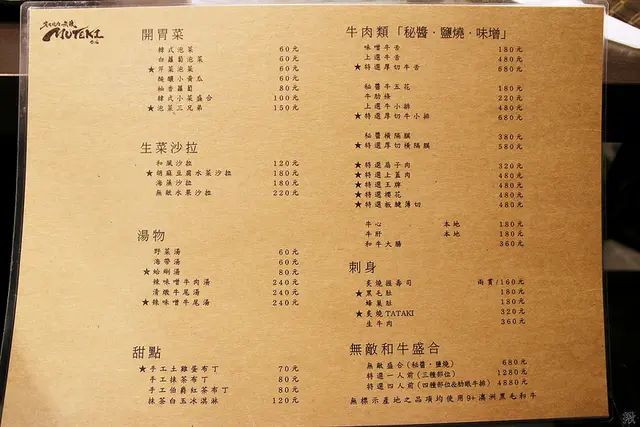 MUTEKI
開胃菜
韓式泡菜 60元
白蘿蔔泡菜 60元
★芹菜泡菜 60元
醃釀小黃瓜 60元
柚香蘿蔔 80元
韓式小菜盛合 100元
★泡菜三兄弟 150元
生菜沙拉
和風沙拉 120元
★胡麻豆腐水菜沙拉 180元
海藻沙拉 180元
無敵水果沙拉 220元
湯物
野菜湯 60元
海帶湯 60元
★蛤蜊湯 80元
辣味噌牛肉湯 240元
清燉牛尾湯 240元
★辣味噌牛尾湯 240元
甜點
★手工土雞蛋布丁 70元
手工抹茶布丁 80元
手工伯爵紅茶布丁 80元
抹茶白玉冰淇淋 120元
牛肉類「秘醬·鹽燒·味增」
味噌牛舌 180元
上選牛舌 480元
★特選厚切牛舌 680元
秘醬牛五花 180元
牛肋條 220元
上選牛小排 480元
★特選厚切牛小排 680元
秘醬橫隔膜 380元
★特選厚切橫隔膜 580元
★特選扇子肉 320元
★特選上蓋肉 480元
★特選王牌 480元
★特選櫻花 480元
★特選板腱薄切 480元
牛心 本地 180元
牛肝 本地 180元
和牛大腸 360元
刺身
炙燒握壽司 兩貫/160元
★黑毛肚 180元
蜂巢肚 180元
★炙燒TATAKI 320元
生牛肉 360元
無敵和牛盛合
無敵盛合(秘醬·鹽燒) 680元
特選一人前(三種部位) 1280元
特選四人前(四種部位 4880元
無標示產地之品項均使用9+澳洲黑毛和牛